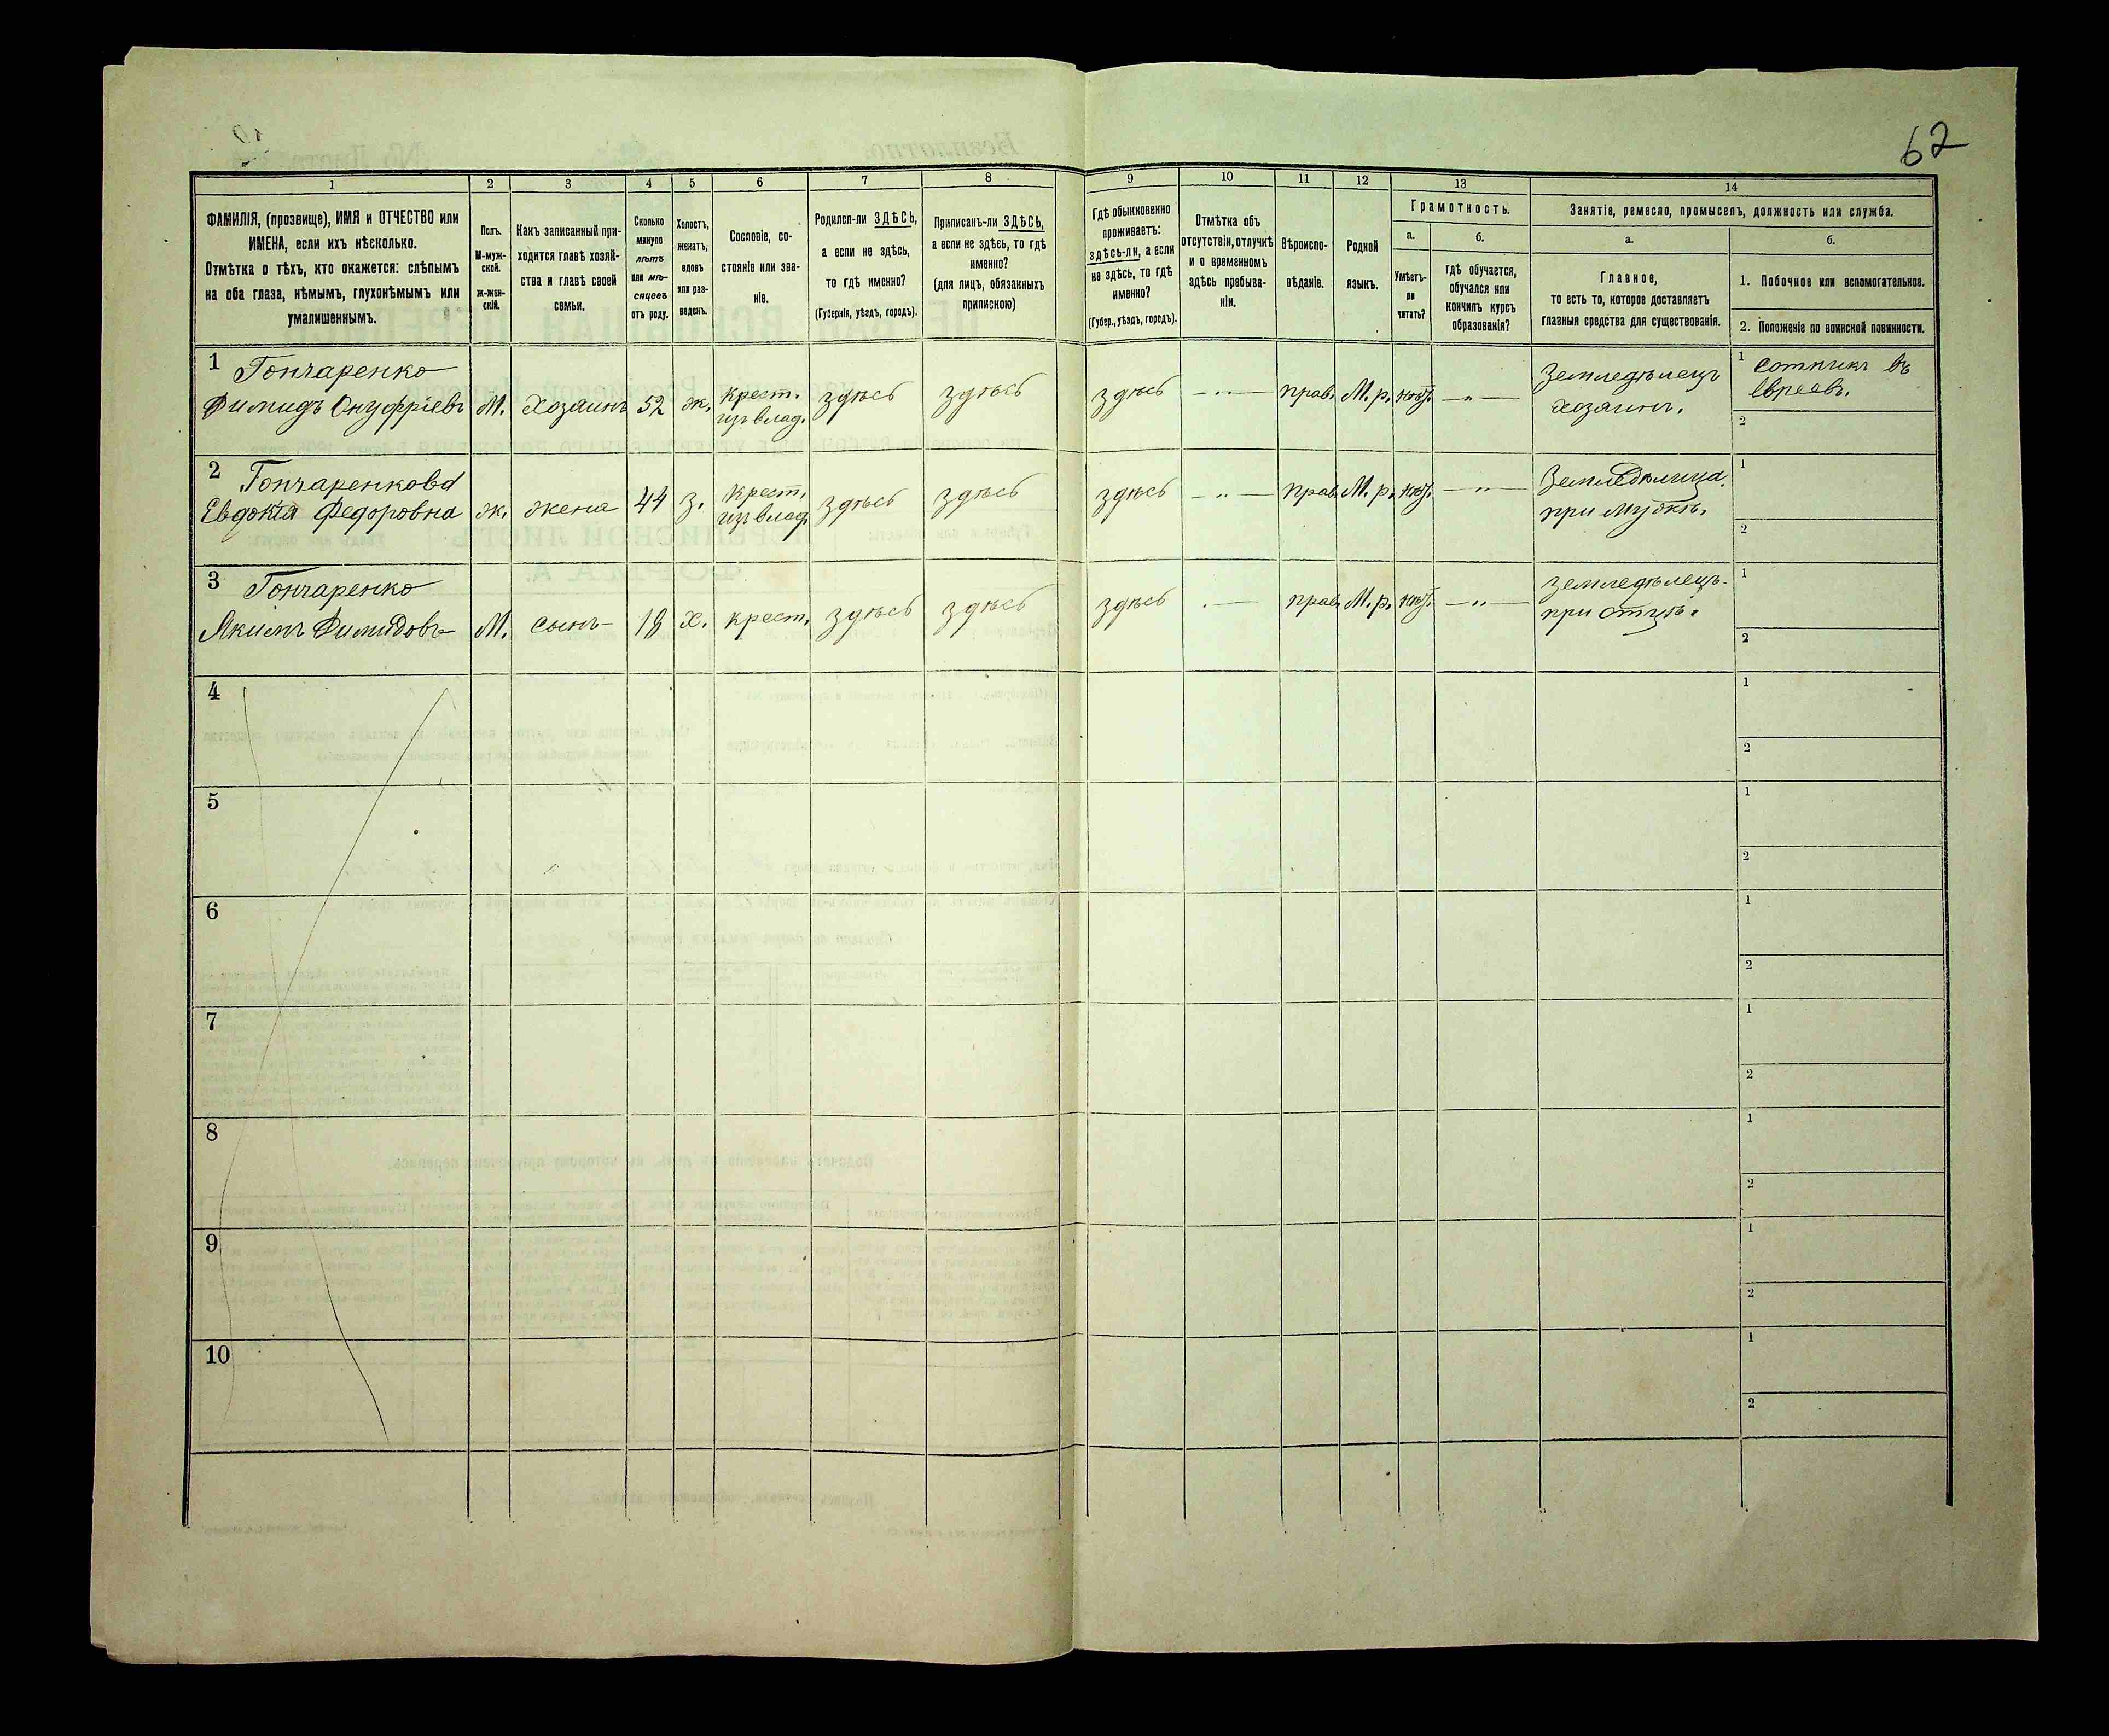 62
1
2
3
4
5
6
7
8
9
10
11
12
13
14
ФАМИЛІЯ, (прозвище), ИМЯ и ОТЧЕСТВО или
ИМЕНА, если ихъ нѣсколько.
Отмѣтка о тѣхъ, кто окажется: слѣпымъ
на оба глаза, нѣмымъ, глухонѣмымъ или
умалишеннымъ.
Полъ.
М-муж-
ской.
Ж-жен-
скій.
Какъ записанный при-
ходится главѣ хозяй-
ства и главѣ своей
семьи.
Сколько
минуло
лѣтъ
или мѣ-
сяцевъ
отъ роду.
Холостъ,
женатъ,
вдовъ
или раз-
веденъ.
Сословіе, со-
стояніе или зва-
ніе.
Родился-ли ЗДѢСЬ,
а если не здѣсь,
то гдѣ именно?
(Губернія, уѣздъ, городъ).
Приписанъ-ли ЗДѢСЬ,
а если не здѣсь, то гдѣ
именно?
(для лицъ, обязанныхъ
припискою)
Гдѣ обыкновенно
проживаетъ:
здѣсь-ли, а если
не здѣсь, то гдѣ
именно?
(Губер., уѣздъ, городъ).
Отмѣтка объ
отсутствіи, отлучкѣ
и о временномъ
здѣсь пребыва-
ніи.
Вѣроиспо-
вѣданіе.
Родной
языкъ.
Грамотность.
а.
Умѣетъ-
ли
читать?
б.
гдѣ обучается,
обучался или
кончилъ курсъ
образованія?
Занятіе, ремесло, промыселъ, должность или служба.
а.
Главное,
то есть то, которое доставляетъ
главныя средства для существованія.
б.
1. Побочное или вспомогательное.
2. Положеніе по воинской повинности.
1 Гончаренко
Димидъ Онуфріевъ М. Хозяинъ 52 ж. крест. изъ влад. здѣсь здѣсь здѣсь — " — прав. М. р. нѣт. — " — Земледѣлецъ хозяинъ. 1 сотникъ въ
2
2 Гончаренкова
Евдокія Федоровна ж. жена 44 з. крест. изъ влад. здѣсь здѣсь здѣсь — " — прав. М. р. нѣт. — " — при мужѣ. 1
2
3 Гончаренко
Якимъ Димидовъ М. сынъ 18 х. крест. здѣсь здѣсь здѣсь — прав. М. р. нѣт. — " — земледѣлецъ при отцѣ. 1
2
4 1
2
5 1
2
6 1
2
7 1
2
8 1
2
9 1
2
10 1
2